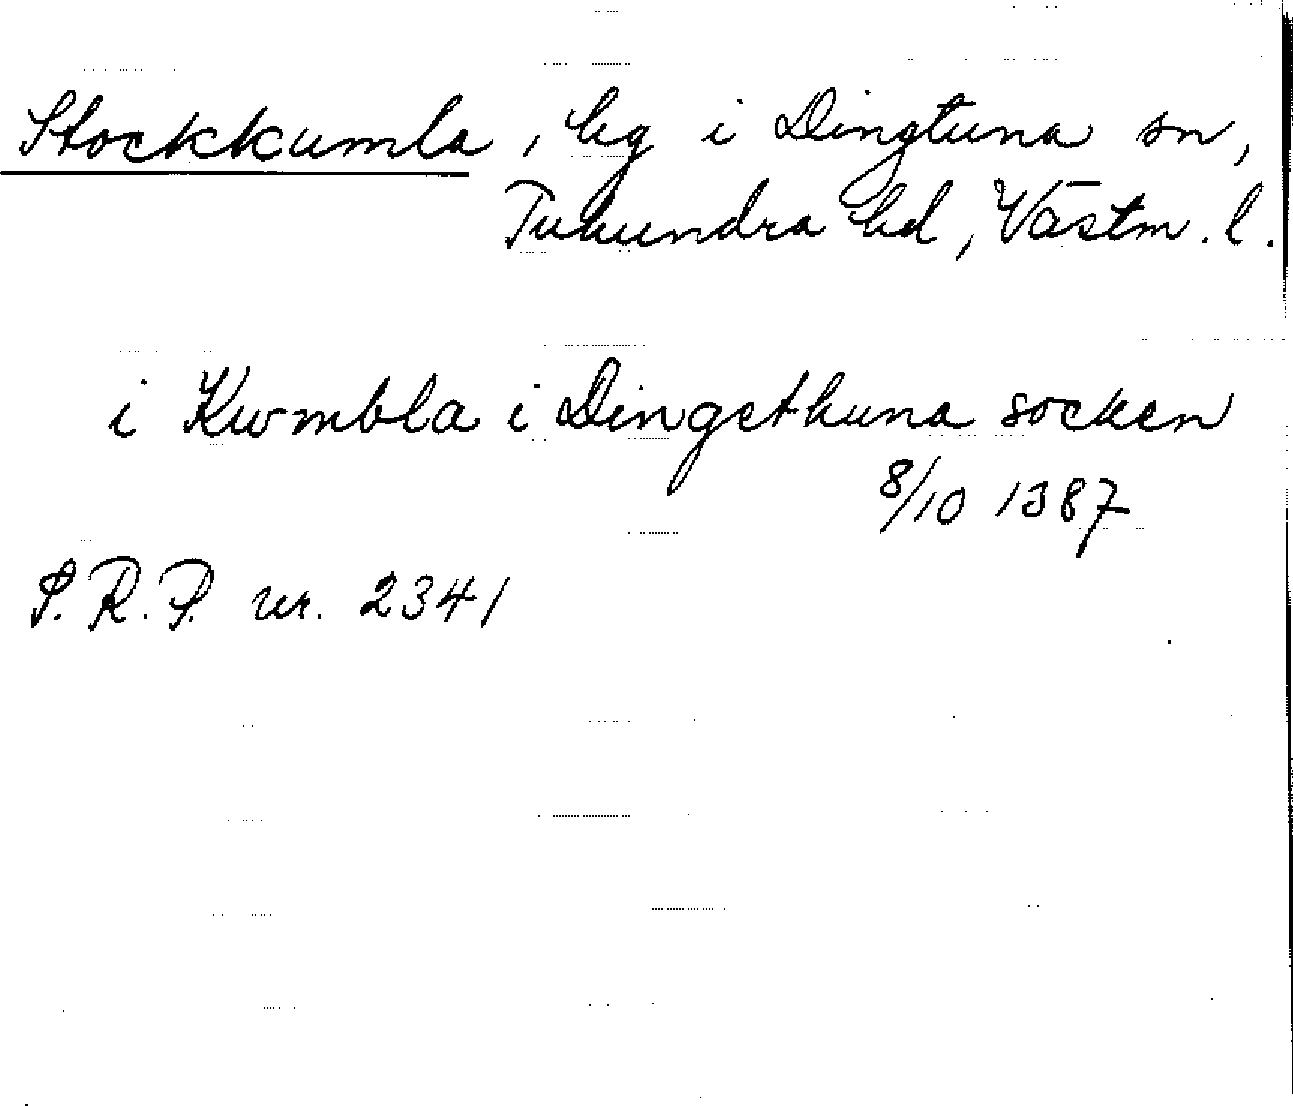 Stockkumla, hg i Dingtuna sn,
Tuhundra hd, Västm. l.
i Kwmbla i Dingethuna socken
8/10 1387
S.R.P. nr. 2341